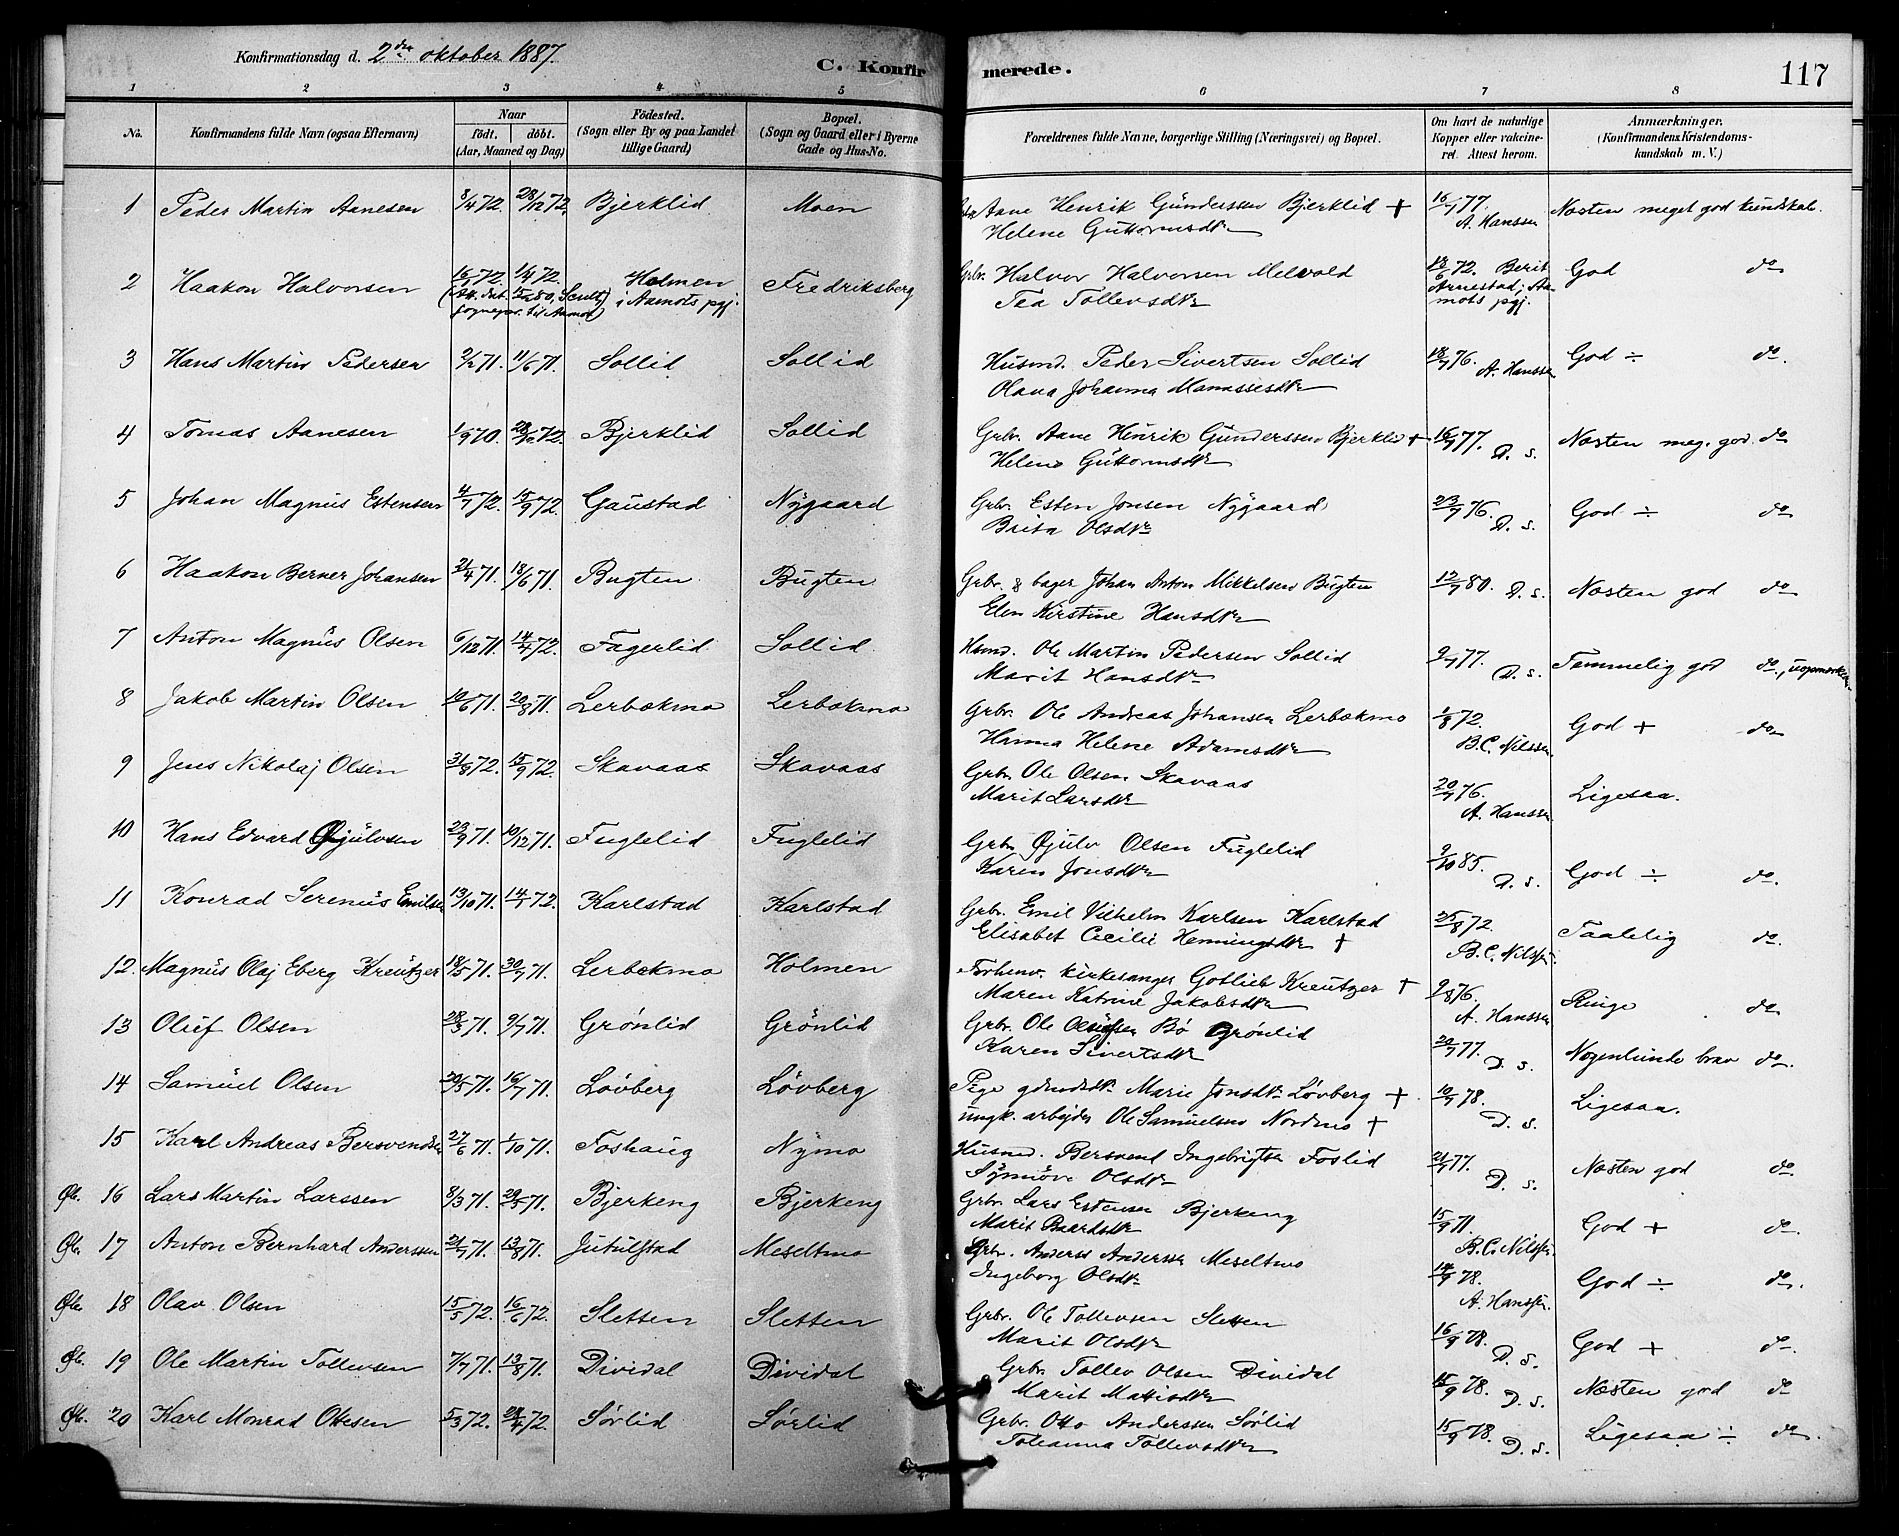 Konfirmationsdag d. 2den oktober 1887.
C. Konfirmerede.
117
1 2 3 4 5 6 7 8
No. Konfirmandens fulde Navn (ogsaa Efternavn) Naar födt. döbt. (Aar, Maaned og Dag) Födested. (Sogn eller By og paa Landet tillige Gaard) Bopæl. (Sogn og Gaard eller i Byerne Gade og Hus-No.) Forældrenes fulde Navne, borgerlige Stilling (Næringsvei) og Bopæl. Om havt de naturlige Kopper eller vakcineret. Attest herom. Anmærkninger. (Konfirmandens Kristendomskundskab m. V.)
1 Peder Martin Aanesen 8/4 72. 28/12 72. Bjerklid Moen Grbr. Aane Henrik Gundersen Bjerklid + 16/7 77. Næsten meget god kundskab.
Helene Guttormsdtr A. Hanssen
2 Haakon Halvorsen 16/1 72. 1/4 72. Holmen i Aamots pgj. Fredriksberg Grbr. Halvor Halvorsen Melvold 18/6 72. Berit Arnestad, Aamots pgj. God do
Tea Tollevsdtr
3 Hans Martin Pedersen 2/2 71. 11/6 71. Sollid Sollid Husmd. Peder Sivertsen Sollid 18/7 76. A. Hanssen God ÷ do.
Olava Johanna Manassesdtr
4 Tomas Aanesen 1/9 70. 28/12 72. Bjerklid Sollid Grbr. Aane Henrik Gunderssen Bjerklid + 16/7 77. D. s. Næsten meg. god. do
Helene Guttormsdtr
5 Johan Magnus Estensen 4/7 72. 15/9 72. Gaustad Nygaard Grbr. Esten Jonsen Nygaard 23/7 76. D. s. God ÷ do
Brita Olsdtr
6 Haakon Berner Johansen 21/4 71. 18/6 71. Bugten Bugten Grbr. & bager Johan Anton Mikkelsen Bugten 12/7 80. D. s. Næsten god do
Elen Kirstine Hansdtr
7 Anton Magnus Olsen 6/12 71. 14/4 72. Fagerlid Sollid Husmd. Ole Martin Pedersen Sollid 9/7 77. D. s. Temmelig god do, uopmærksom
Marit Hansdtr
8 Jakob Martin Olsen 10/6 71. 20/8 71. Lerbækmo Lerbækmo Grbr. Ole Andreas Johansen Lerbækmo 1/8 72. God + do
Hanna Helene Adamsdtr B.C. Nilssen
9 Jens Nikolaj Olsen 31/8 72. 15/9 72. Skavaas Skavaas Grbr. Ole Olsen Skavaas 20/7 76. Ligesaa.
Marit Larsdtr A. Hanssen
10 Hans Edvard Øjulvsen 23/9 71. 10/12 71. Fuglelid Fuglelid Grbr. Øjulv Olsen Fuglelid 9/10 85. D. s. God ÷ do.
Karen Jonsdtr
11 Konrad Serenius Emilsen 13/10 71. 14/7 72. Karlstad Karlstad Grbr. Emil Vilhelm Karlsen Karlstad 25/8 72. Taalelig do.
Elisabet Cecilie Henningsdtr + B.C. Nilssen.
12. Magnus Olaj Eberg Kreutzer 18/5 71. 30/7 71. Lerbækmo Holmen Forhenv. kirkesanger Gotlieb Kreutzer + 9/8 76. Ringe do
Maren Katrine Jakobsdtr A. Hanssen
13 Oluf Olsen 28/3 71. 9/7 71. Grönlid Grönlid Grbr. Ole Olufsen Bö Grönlid 20/7 77. D. s. Nogenlunde brav do.
Karen Sivertsdtr
14 Samuel Olsen 20/5 71. 16/7 71. Lövberg Lövberg Pige gdmdsdtr Marie Jonsdtr Lövberg + 10/7 78. D. s. Ligesaa.
ungk. arbejder Ole Samuelsen Nordmo +
15 Karl Andreas Bersvendsen 27/6 71. 1/10 71. Foshaug Nymo Husmd. Bersvend Ingebrigtsen Foslid 21/7 77. D. s. Næsten god do
Synnöve Olsdtr
Øb. 16 Lars Martin Larssen 8/3 71. 29/5 71. Bjerkeng Bjerkeng Grbr. Lars Estensen Bjerkeng 15/9 71. God + do.
Marit Baardsdtr B.C. Nilssen.
Øb. 17 Anton Bernhard Anderssen 21/7 71. 13/8 71. Jutulstad Meseltmo Grbr. Anders Anderssen Meseltmo 14/9 78. God ÷ do.
Ingeborg Olsdtr A. Hanssen.
Øb. 18 Olav Olsen 15/5 72. 16/6 72. Sletten Sletten Grbr. Ole Tollevsen Sletten 16/9 78. D. s. God + do.
Marit Olsdtr
Øb. 19 Ole Martin Tollevsen 7/7 71. 13/8 71. Dividal Dividal Grbr. Tollev Olsen Dividal 15/9 78. D. s. Næsten god do
Marit Matisdtr
Øb. 20 Karl Monrad Ottesen 5/3 72. 28/4 72. Sörlid Sörlid Grbr. Otto Anderssen Sörlid 15/9 78. D. s. Ligesaa ÷ do.
Johanna Tollevsdtr